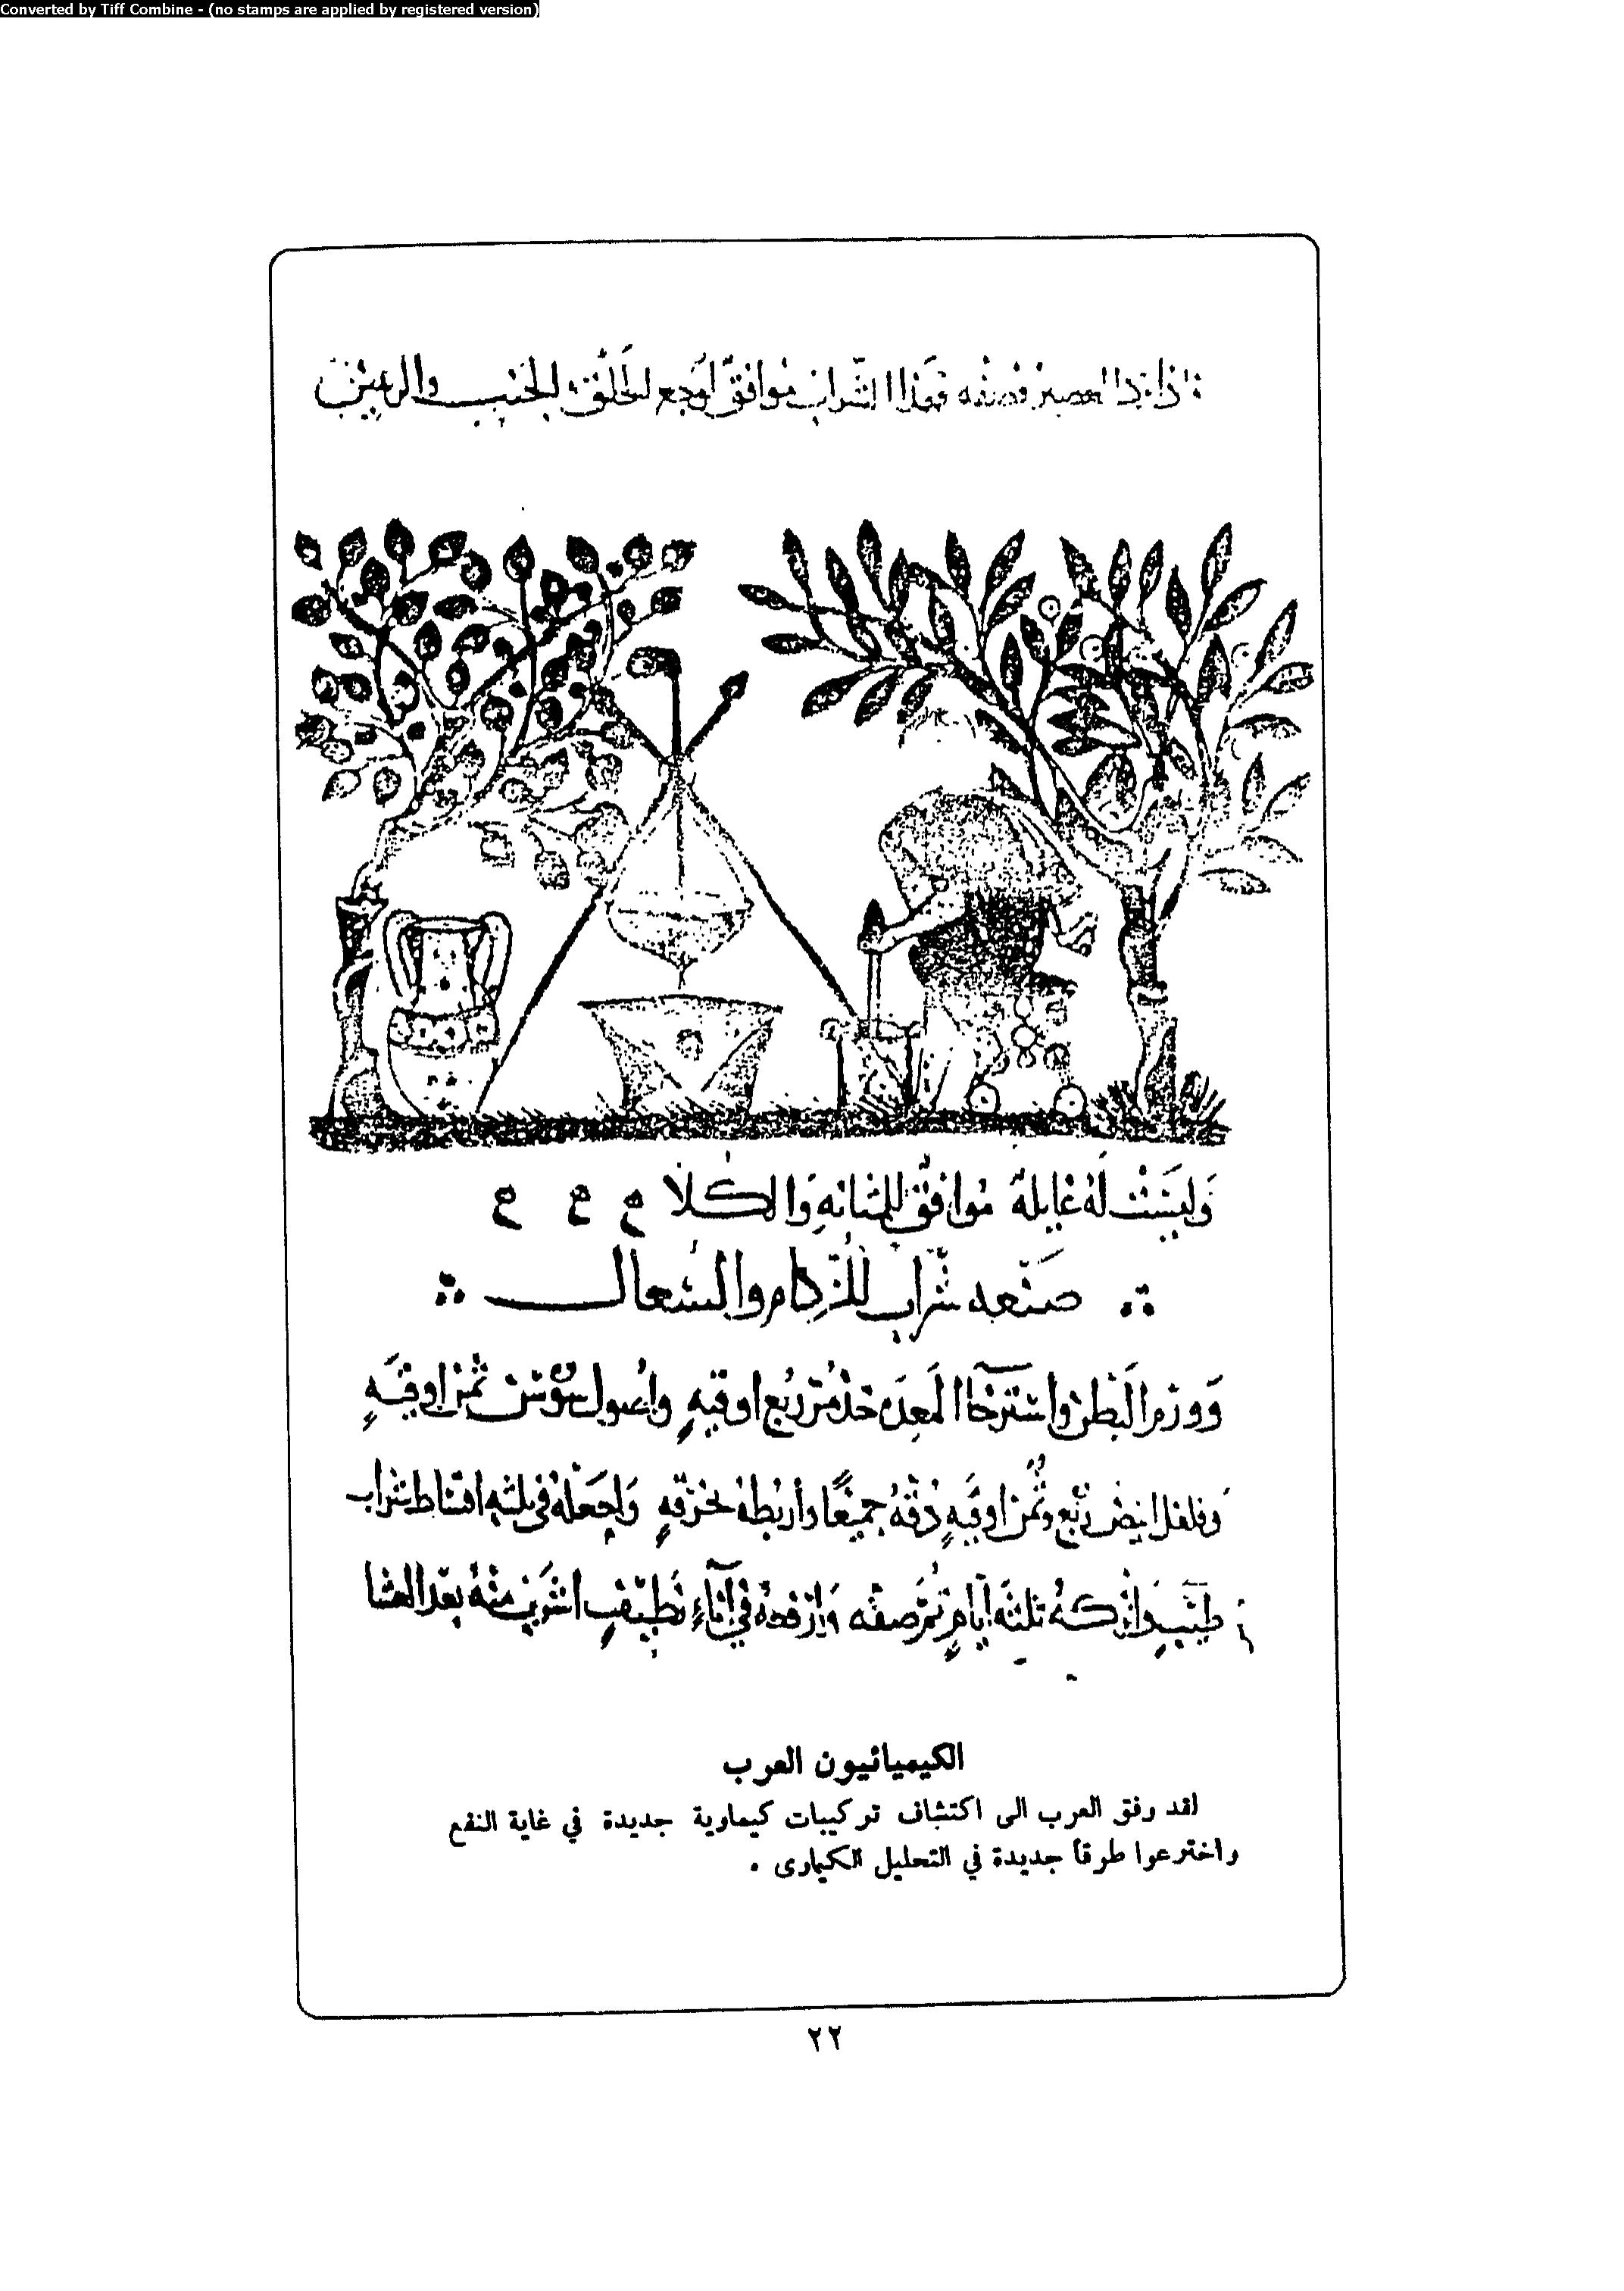 Converted by Tiff Combine - (no stamps are applied by registered version)
العصير فصفه فهذا الشراب موافق لوجع الحلق
وليست له غايلة موافق للمثانه والكلا ع ع ع
صنعه شراب للزكام والسعال
وورم البطن واسترخا المعده خذ مر ربع اوقيه واصول سوس ثمن اوقيه
وفلفل ابيض ربع وثمن اوقيه دقه جميعا واربطه بخرقه واجعله في ثلثه اقساط شراب
طيب واتركه ثلثه ايام ثم صفه وارفعه في اناء نظيف اشرب منه بعد العشا
الكيميائيون العرب
لقد رفق العرب الى اكتشاف تركيبات كيماوية جديدة في غاية النفع
واخترعوا طرقاً جديدة في التحليل الكيماوى .
٢٢